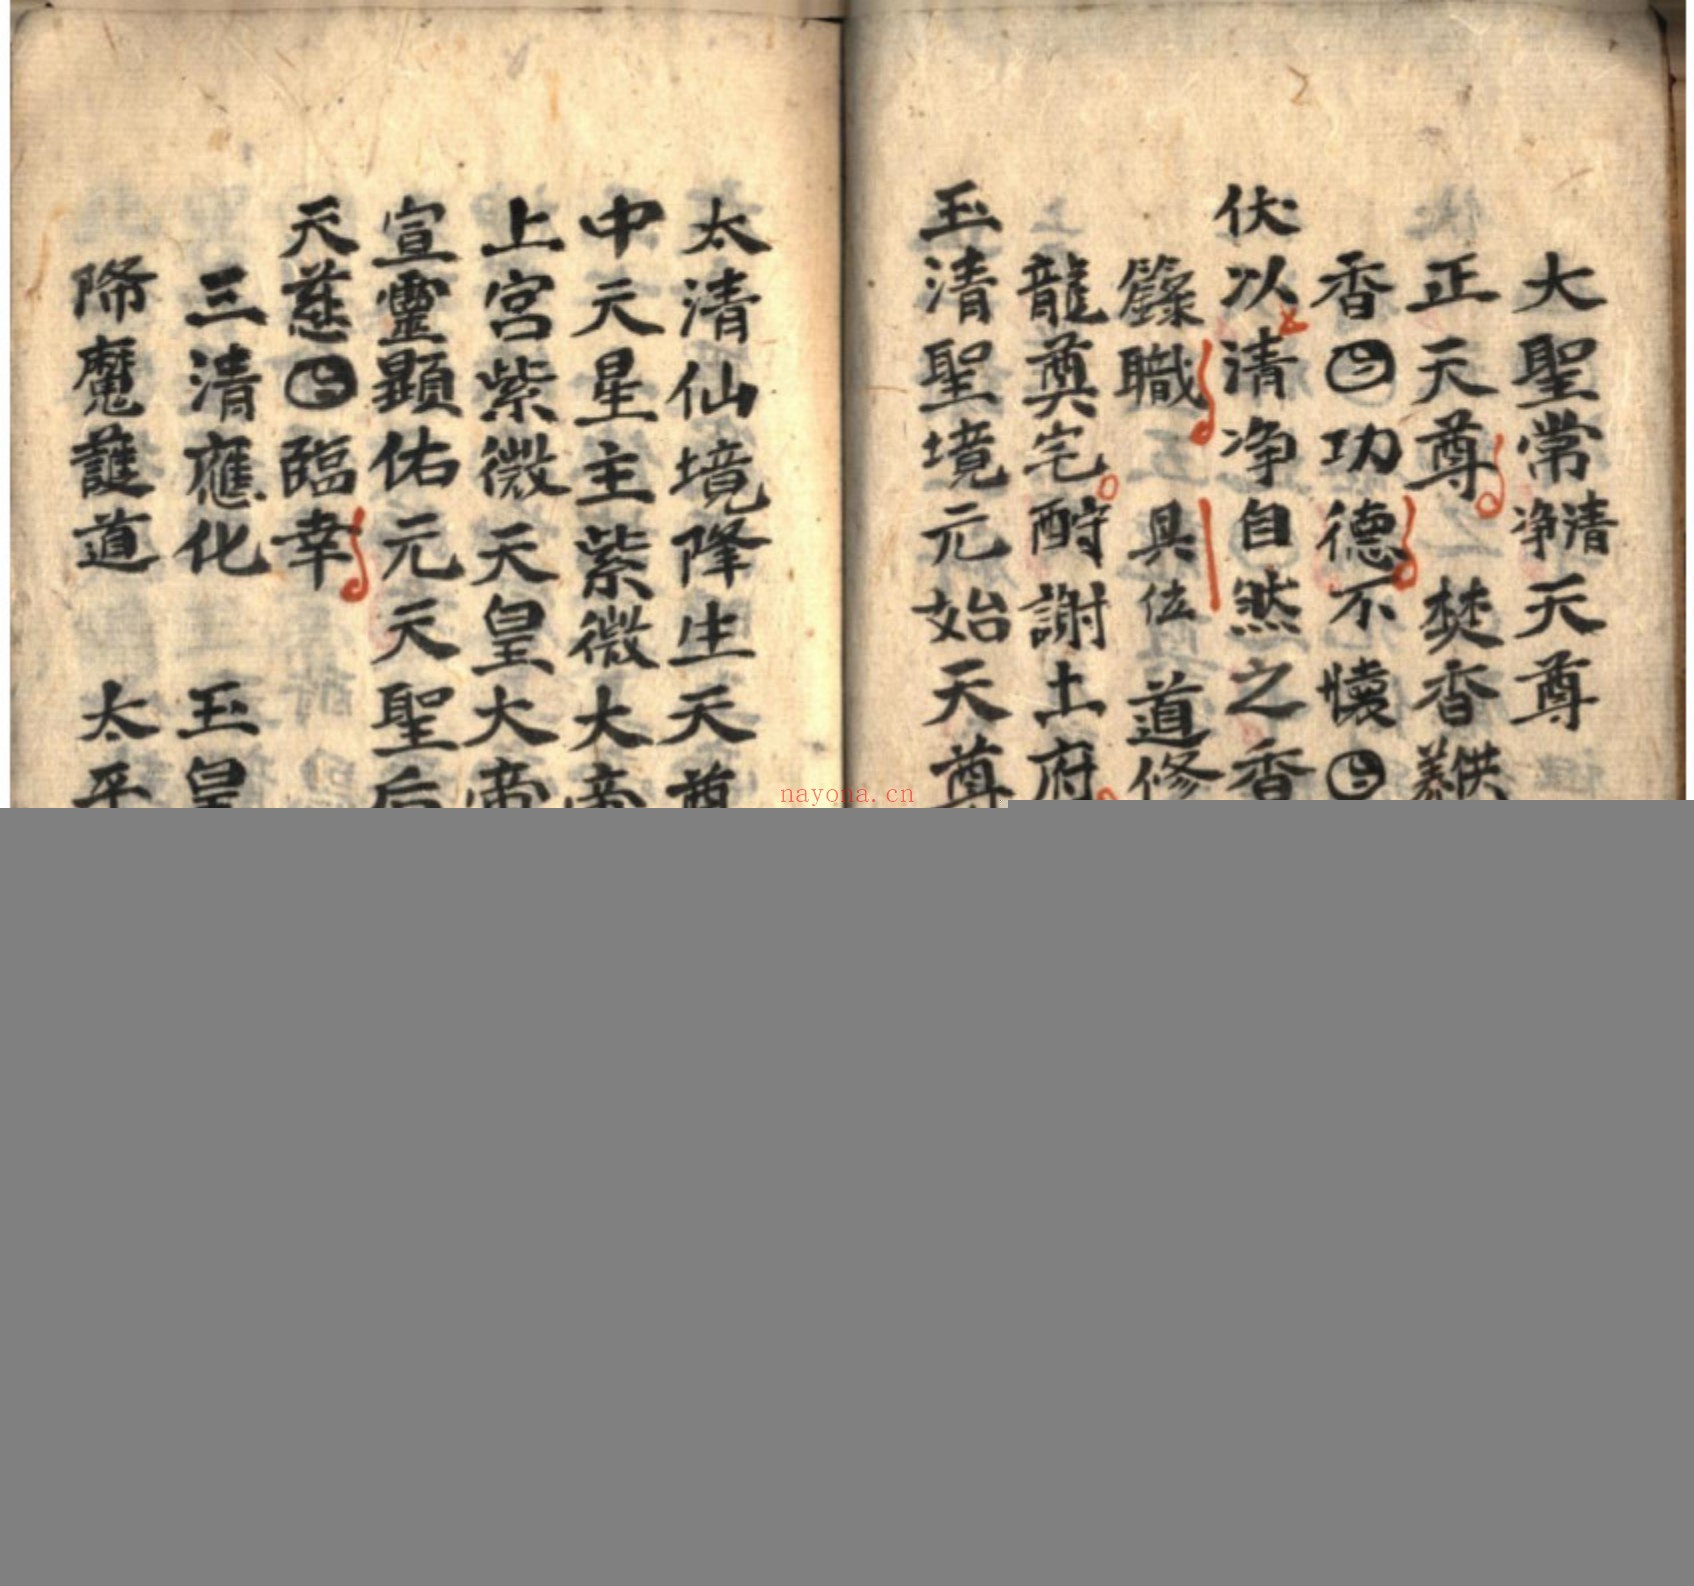 大聖常清净天尊
正天尊 焚香供養
香㊁功德不懷㊁
伏以清净自然之香
籙職 具位 道修
龍奠宅酧謝土府
玉清聖境元始天尊
太清仙境降生天尊
中天星主紫微大帝
上宮紫微天皇大帝
宣靈顯佑元天聖后
天慈㊁臨幸
三清應化 玉皇
降魔護道 太平
nayona.cn